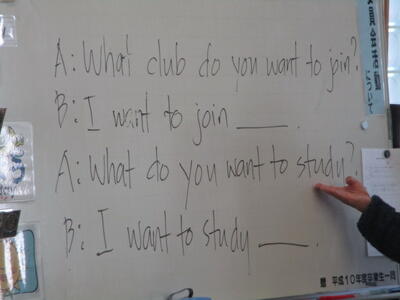 A: What club do you want to join?
B: I want to join ____.
A: What do you want to study?
B: I want to study ____.
平成10年度卒業生一同